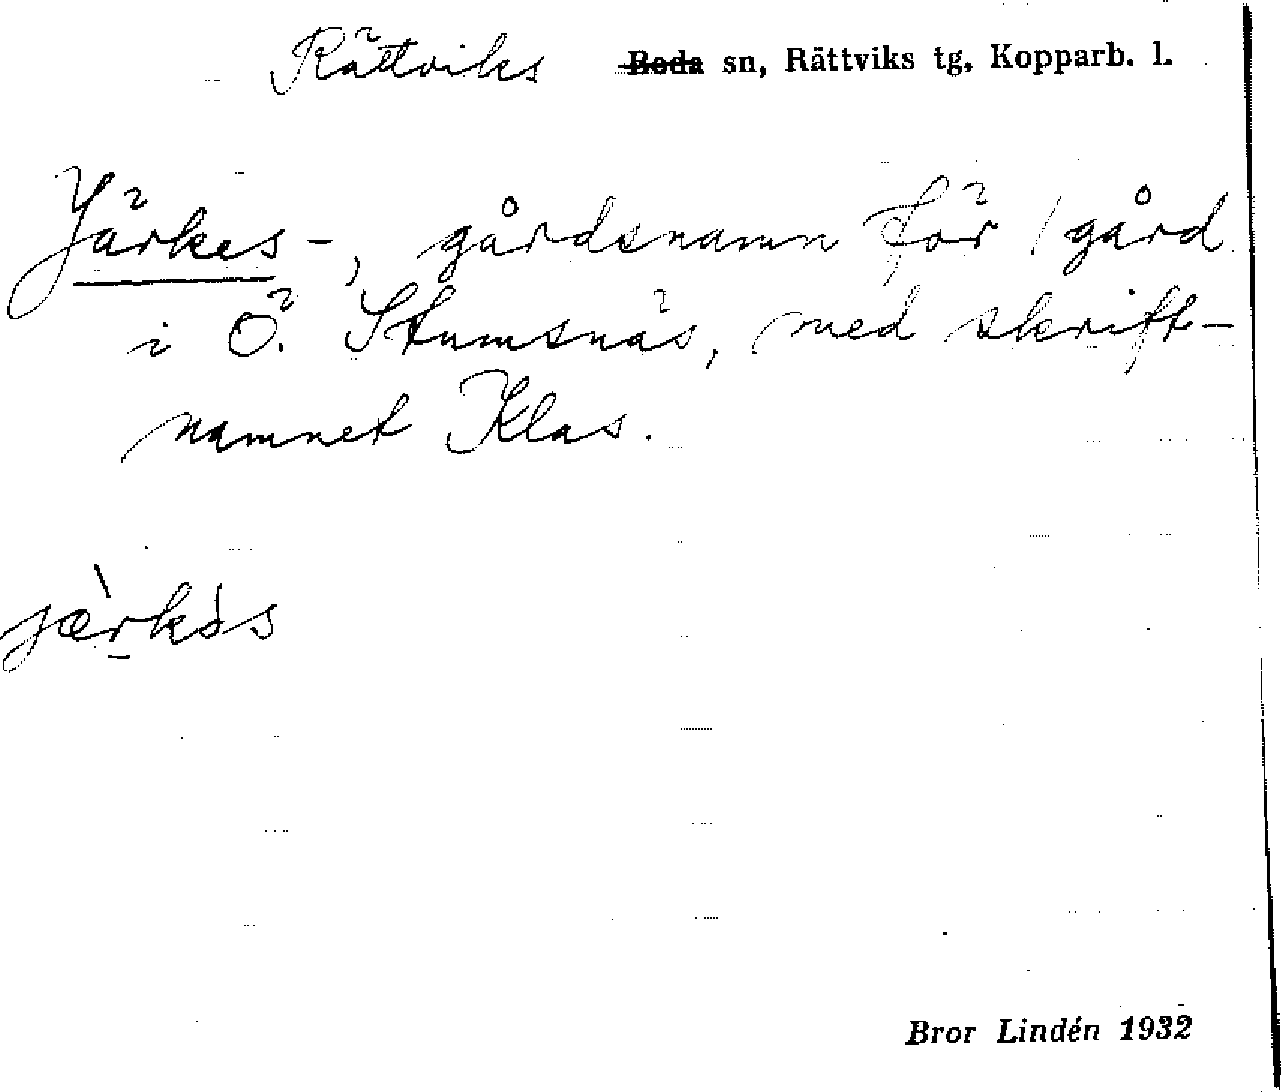 Rättviks Boda sn, Rättviks tg, Kopparb. l.
Järkes-, gårdsnamn för 1 gård
i Ö. Stumsnäs, med skrift-
namnet Klas.
jæ̀rkəs
Bror Lindén 1932